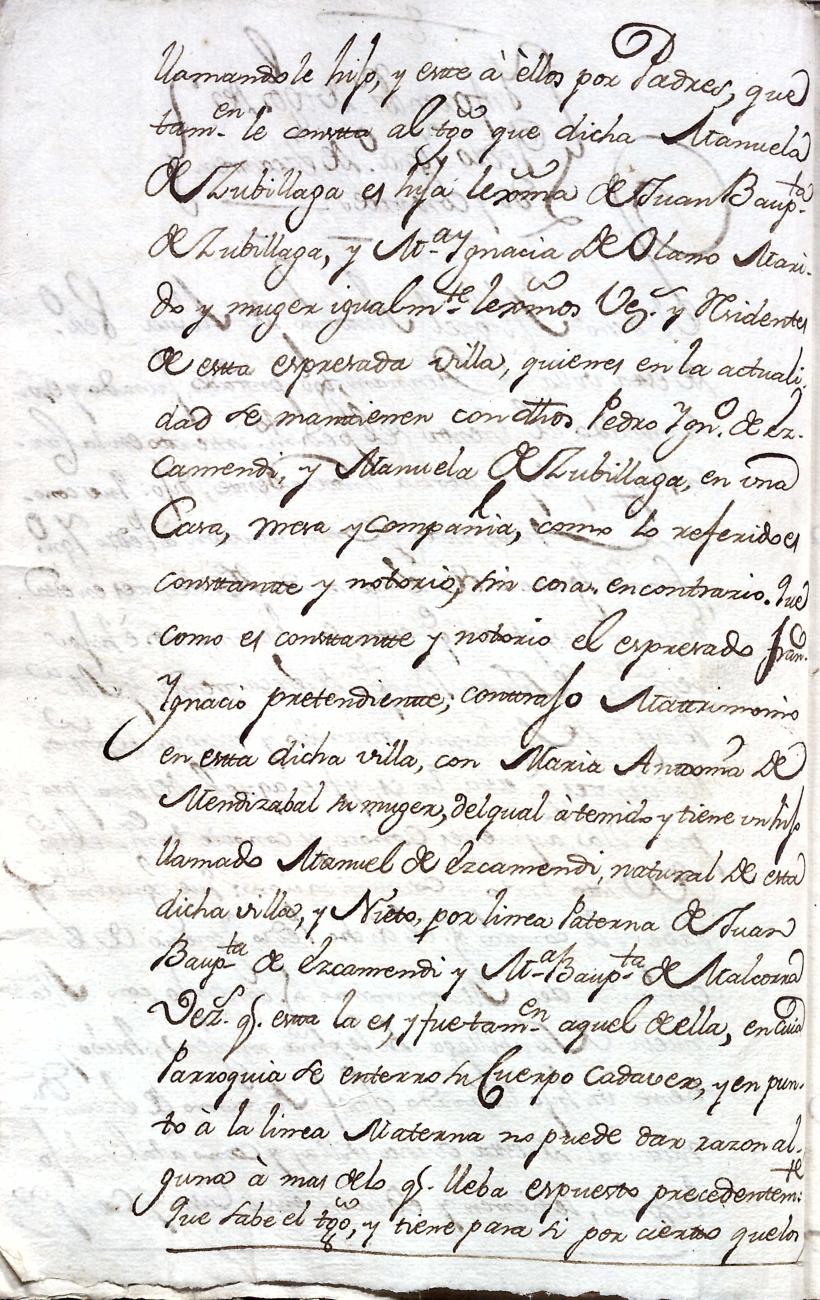 llamandole hijo, y este à èllos por Padres, que
tamen le constta al tgo que dicha Manuela
de Zubillaga es hija lexma de Juan Baupta
de Zubillaga, y Ma Ygnacia de Olano Mari-
do y muger igualmte lexmos Vezs y Residentes
de estta espresada villa, quienes en la actuali-
dad se manttienen con dhos Pedro Ygno de Ez-
camendi, y Manuela de Zubillaga, en vna
Casa, mesa y compañia, como lo referido es
consttantte y notorio, sin cosa encontrario. Que
como es consttantte y notorio el espresado Fran
Ygnacio pretendientte, conttrajo Mattrimonio
en estta dicha villa, con Maria Anttonia de
Mendizabal su muger, del qual à tenido y tiene un hijo
llamado Manuel de Ezcamendi, natural de esta
dicha villa, y Nieto, por linea Paterna de Juan
Baupta de Ezcamendi y Ma Baupta de Malcorra
Vez. q. estta la es, y fue tamen aquel de ella, en cuia
Parroquia se enterro su Cuerpo Cadaver, y en pun-
to à la linea Materna no puede dar razon al-
guna à mas de lo q. lleba espuesto precedentemte
Que sabe el tgo, y tiene para si por cierto que los